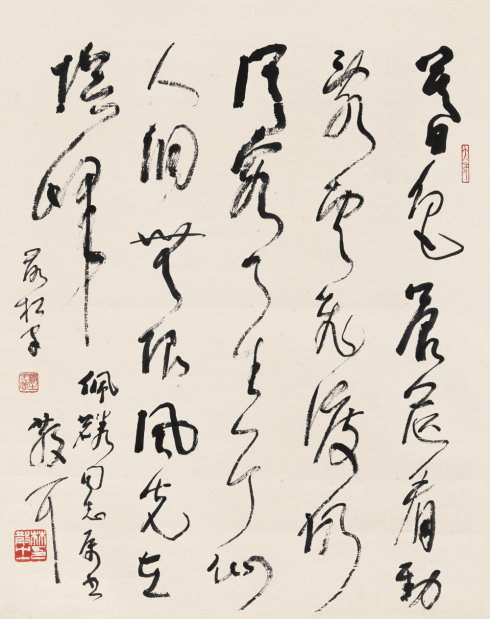 暮色蒼茫看勁
亂雲飛渡仍
從容天生一个仙
人洞無限風光在
險峰
落松字
佩麟同志属书
散耳